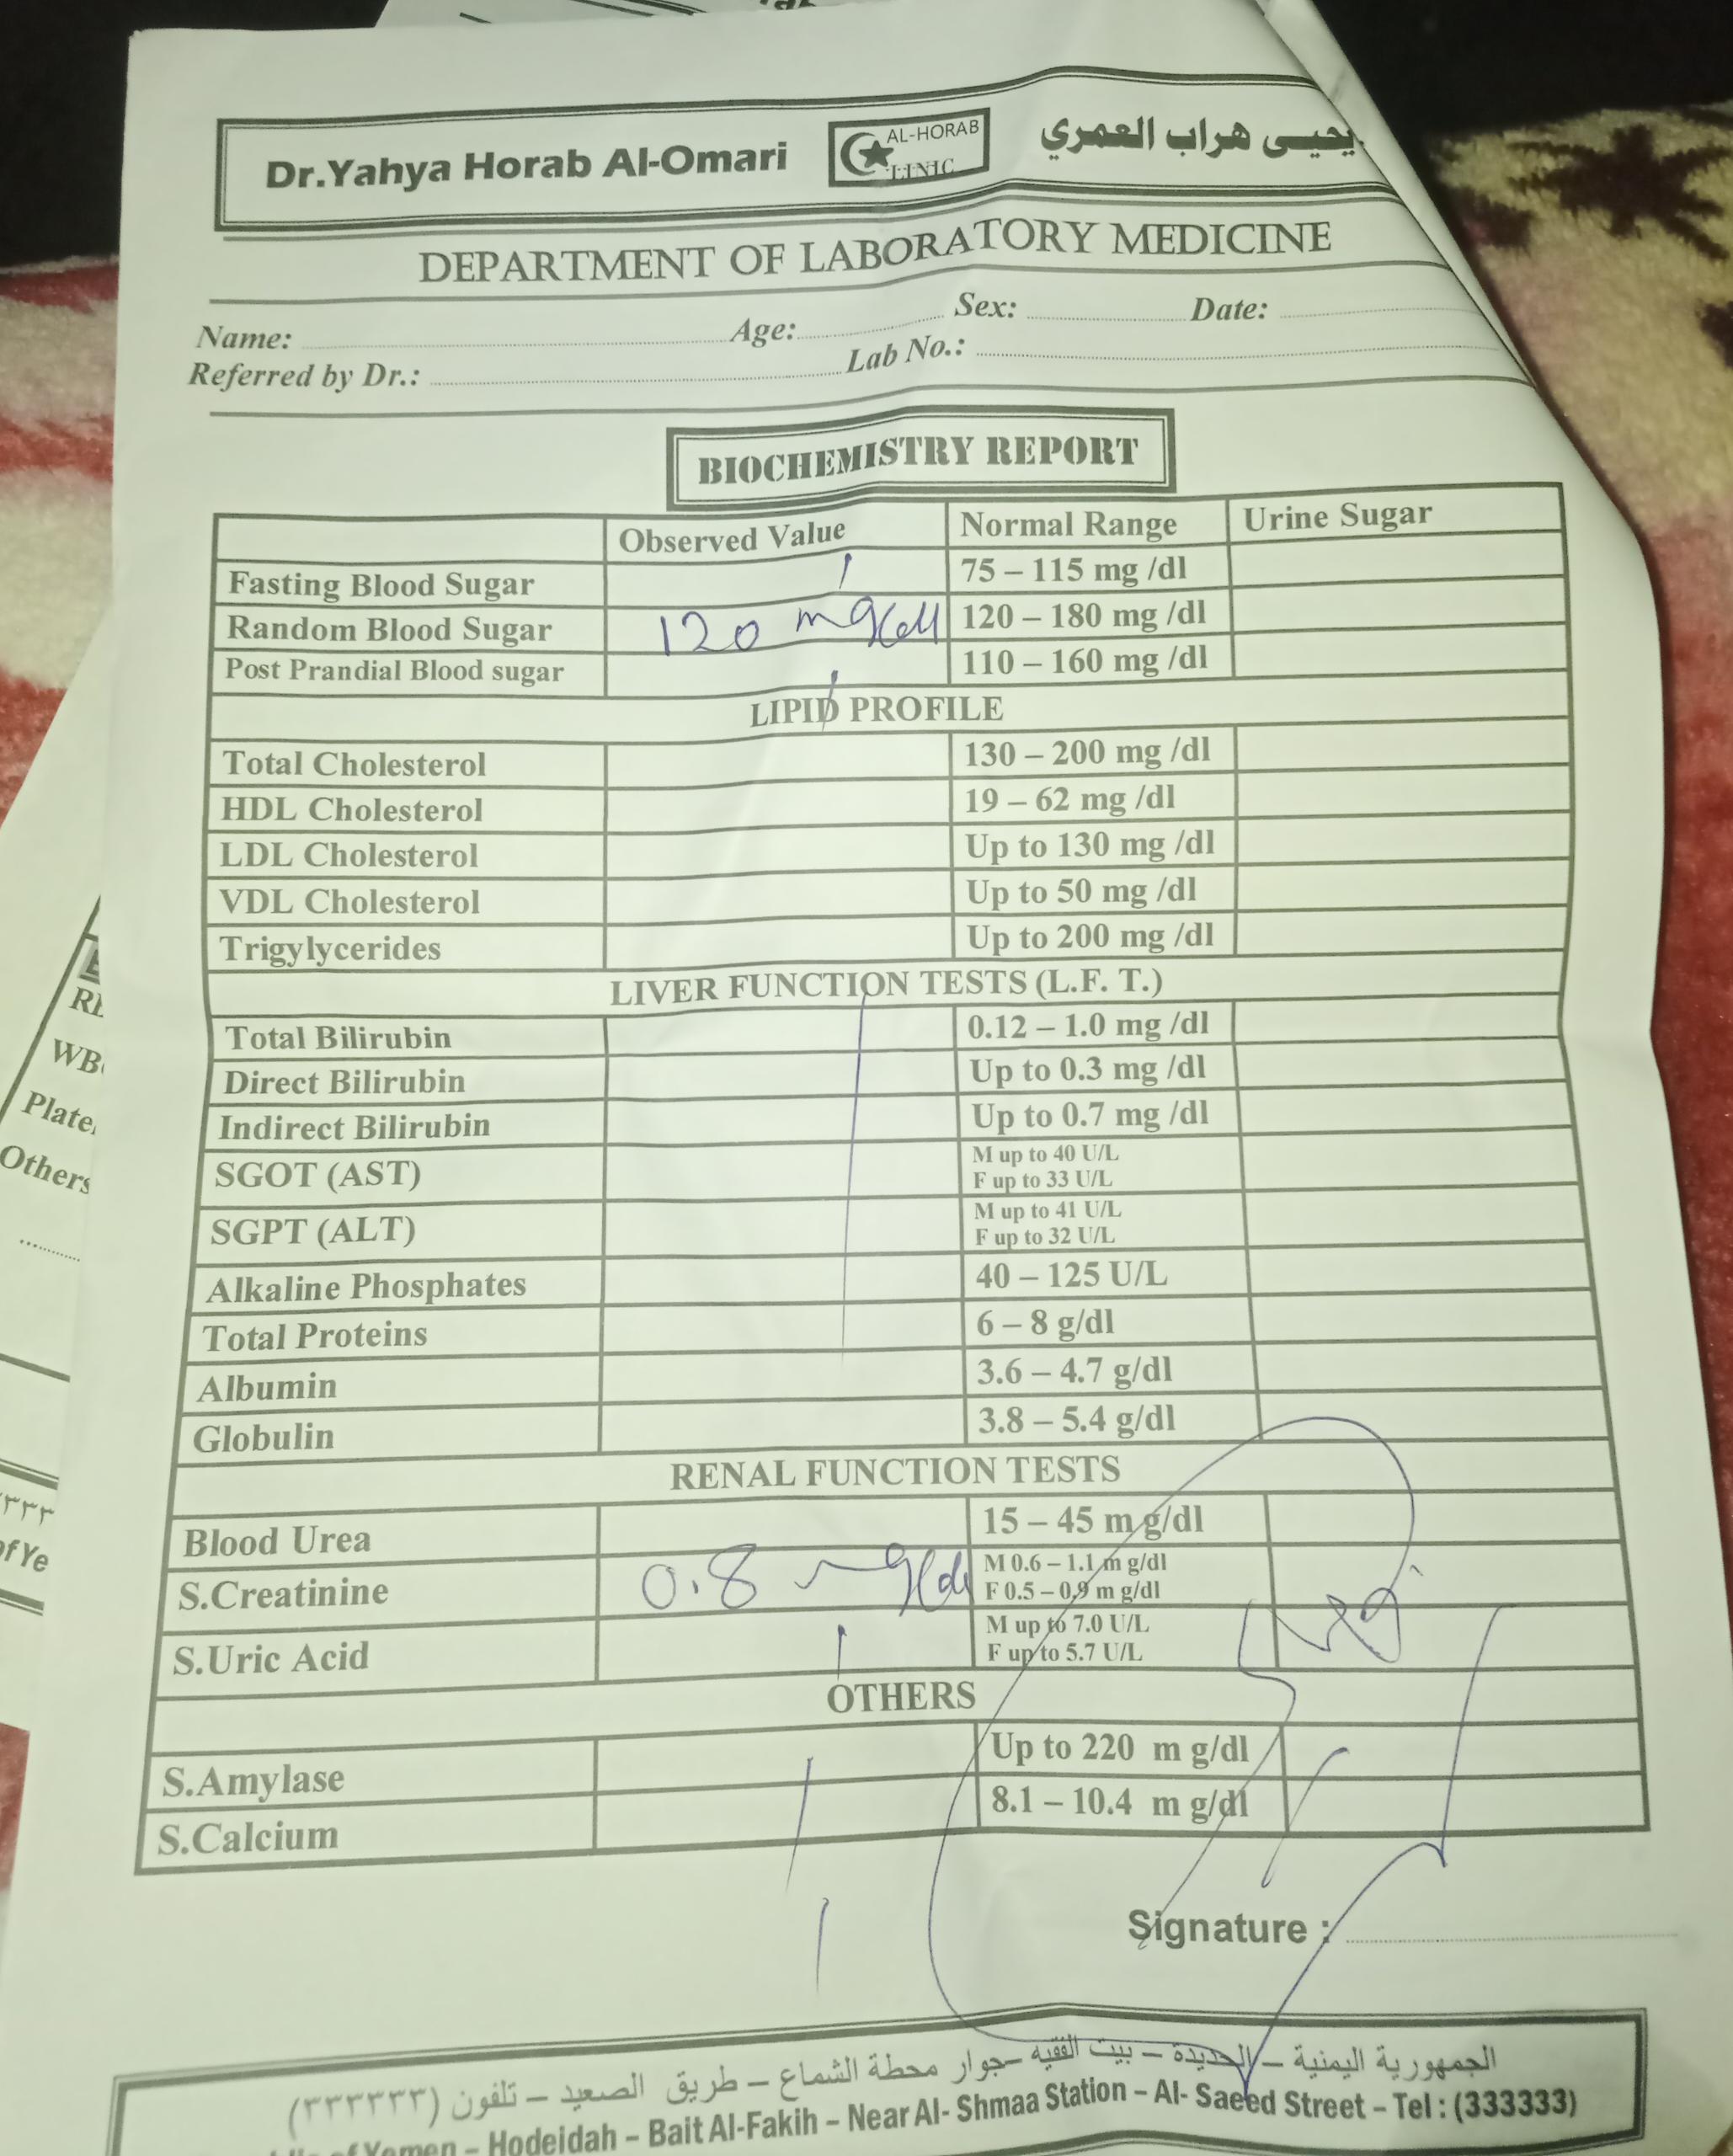 Dr.Yahya Horab Al-Omari
AL-HORAB
LINIC
يحيى هراب العمري
DEPARTMENT OF LABORATORY MEDICINE
Name: Age: Sex: Date:
Referred by Dr.: Lab No.:
BIOCHEMISTRY REPORT
Observed Value Normal Range Urine Sugar
Fasting Blood Sugar 75 – 115 mg /dl
Random Blood Sugar 120 mg/dl 120 – 180 mg /dl
Post Prandial Blood sugar 110 – 160 mg /dl
LIPID PROFILE
Total Cholesterol 130 – 200 mg /dl
HDL Cholesterol 19 – 62 mg /dl
LDL Cholesterol Up to 130 mg /dl
VDL Cholesterol Up to 50 mg /dl
Trigylycerides Up to 200 mg /dl
LIVER FUNCTION TESTS (L.F. T.)
Total Bilirubin 0.12 – 1.0 mg /dl
Direct Bilirubin Up to 0.3 mg /dl
Indirect Bilirubin Up to 0.7 mg /dl
SGOT (AST) M up to 40 U/L
F up to 33 U/L
SGPT (ALT) M up to 41 U/L
F up to 32 U/L
Alkaline Phosphates 40 – 125 U/L
Total Proteins 6 – 8 g/dl
Albumin 3.6 – 4.7 g/dl
Globulin 3.8 – 5.4 g/dl
RENAL FUNCTION TESTS
Blood Urea 15 – 45 m g/dl
S.Creatinine 0.8 mg/dl M 0.6 – 1.1 m g/dl
F 0.5 – 0.9 m g/dl
S.Uric Acid M up to 7.0 U/L
F up to 5.7 U/L
OTHERS
S.Amylase Up to 220 m g/dl
S.Calcium 8.1 – 10.4 m g/dl
Signature :
الجمهورية اليمنية – الحديدة – بيت الفقيه – جوار محطة الشماع – طريق الصعيد – تلفون (٣٣٣٣٣٣)
of Yemen – Hodeidah – Bait Al-Fakih – Near Al- Shmaa Station – Al- Saeed Street – Tel : (333333)
WB
Plate
Others
of Ye